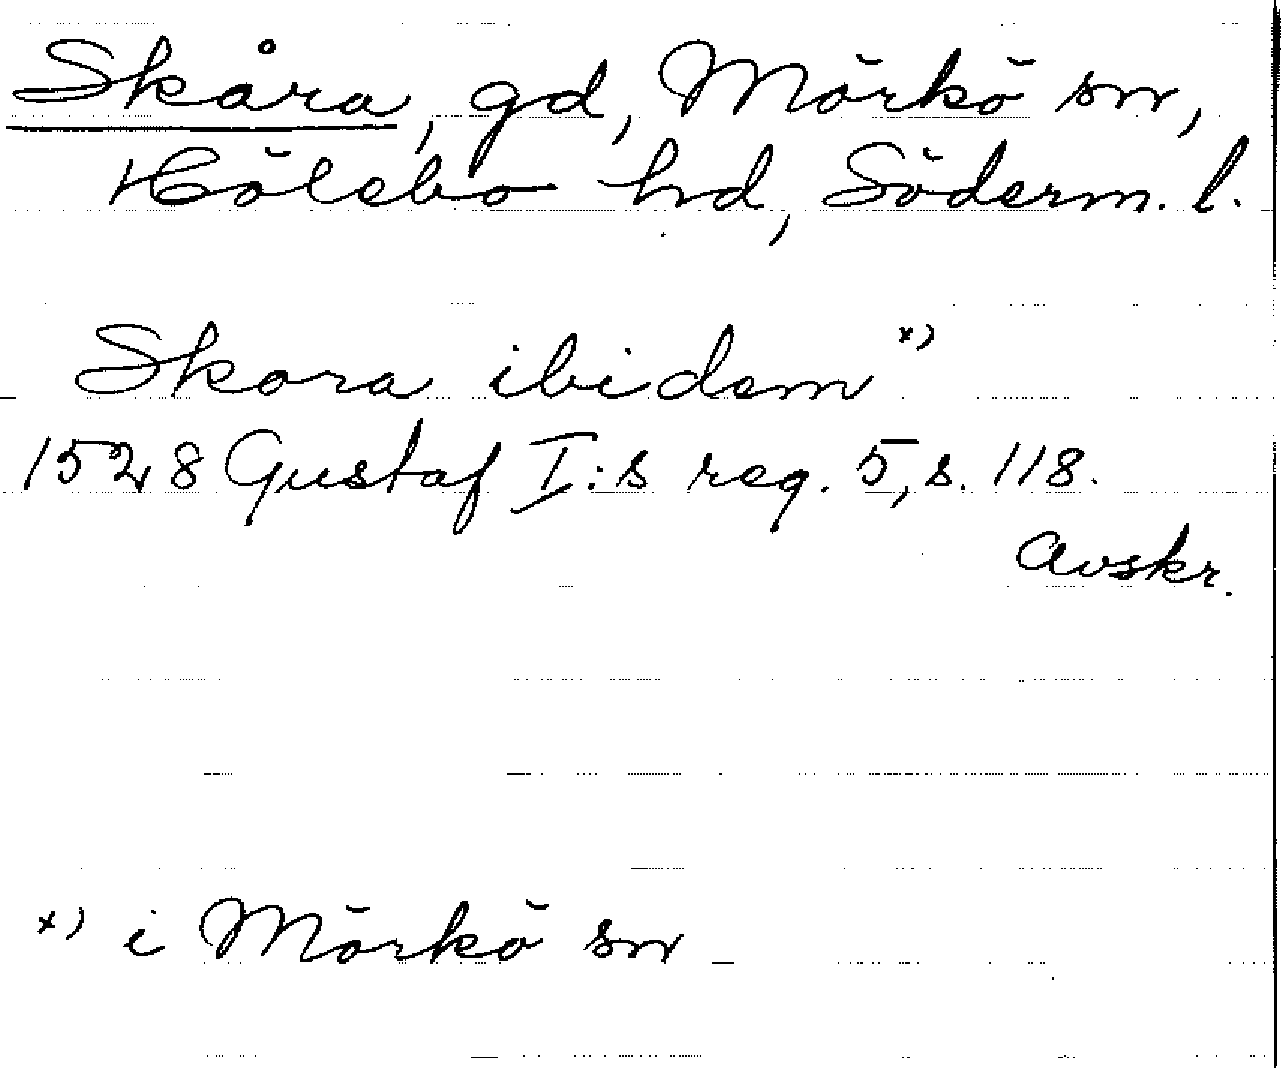 Skåra, gd, Mörkö sn,
Hölebo hd, Söderm. l.
Skora ibidem x)
1528 Gustaf I:s reg. 5, s. 118.
Avskr.
x) i Mörkö sn